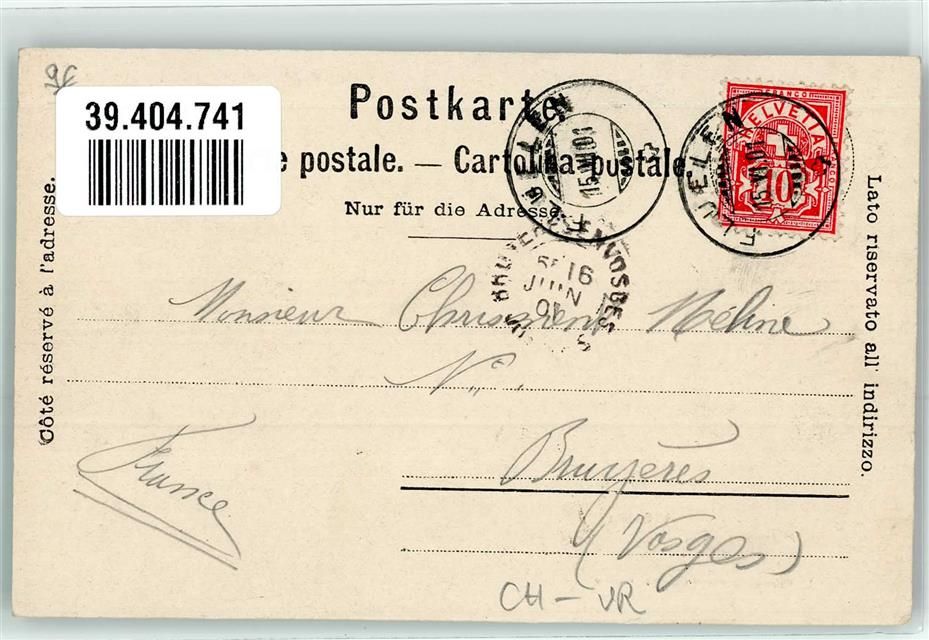 39.404.741
Postkarte
e postale. — Cartolina postale
Nur für die Adresse.
Côté réservé à l'adresse.
Lato riservato all' indirizzo.
FRANCO
HELVETIA
10
FLUELEN
15.VI.01
FLUELEN
15.VI.01
BRUYERES VOSGES
16
JUIN
01
Monsieur Méline
N.
Bruyères
(Vosges)
France
CH – VR